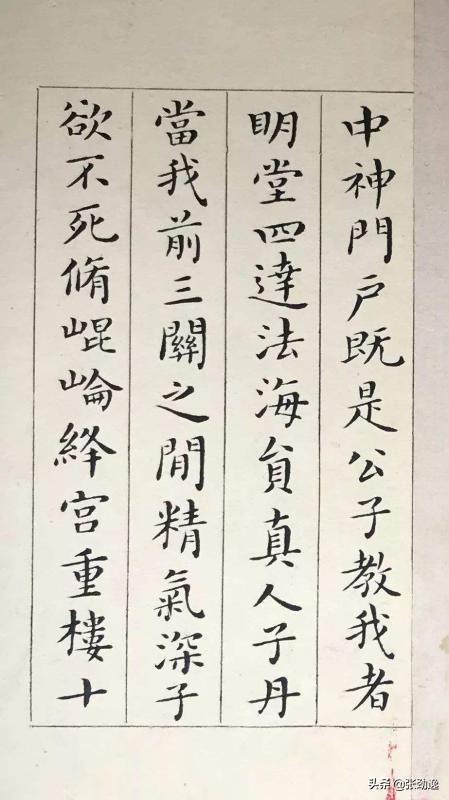 中神門戶既是公子教我者
明堂四達法海員真人子丹
當我前三關之間精氣深子
欲不死脩崐崘絳宮重樓十
头条 @张劲逸